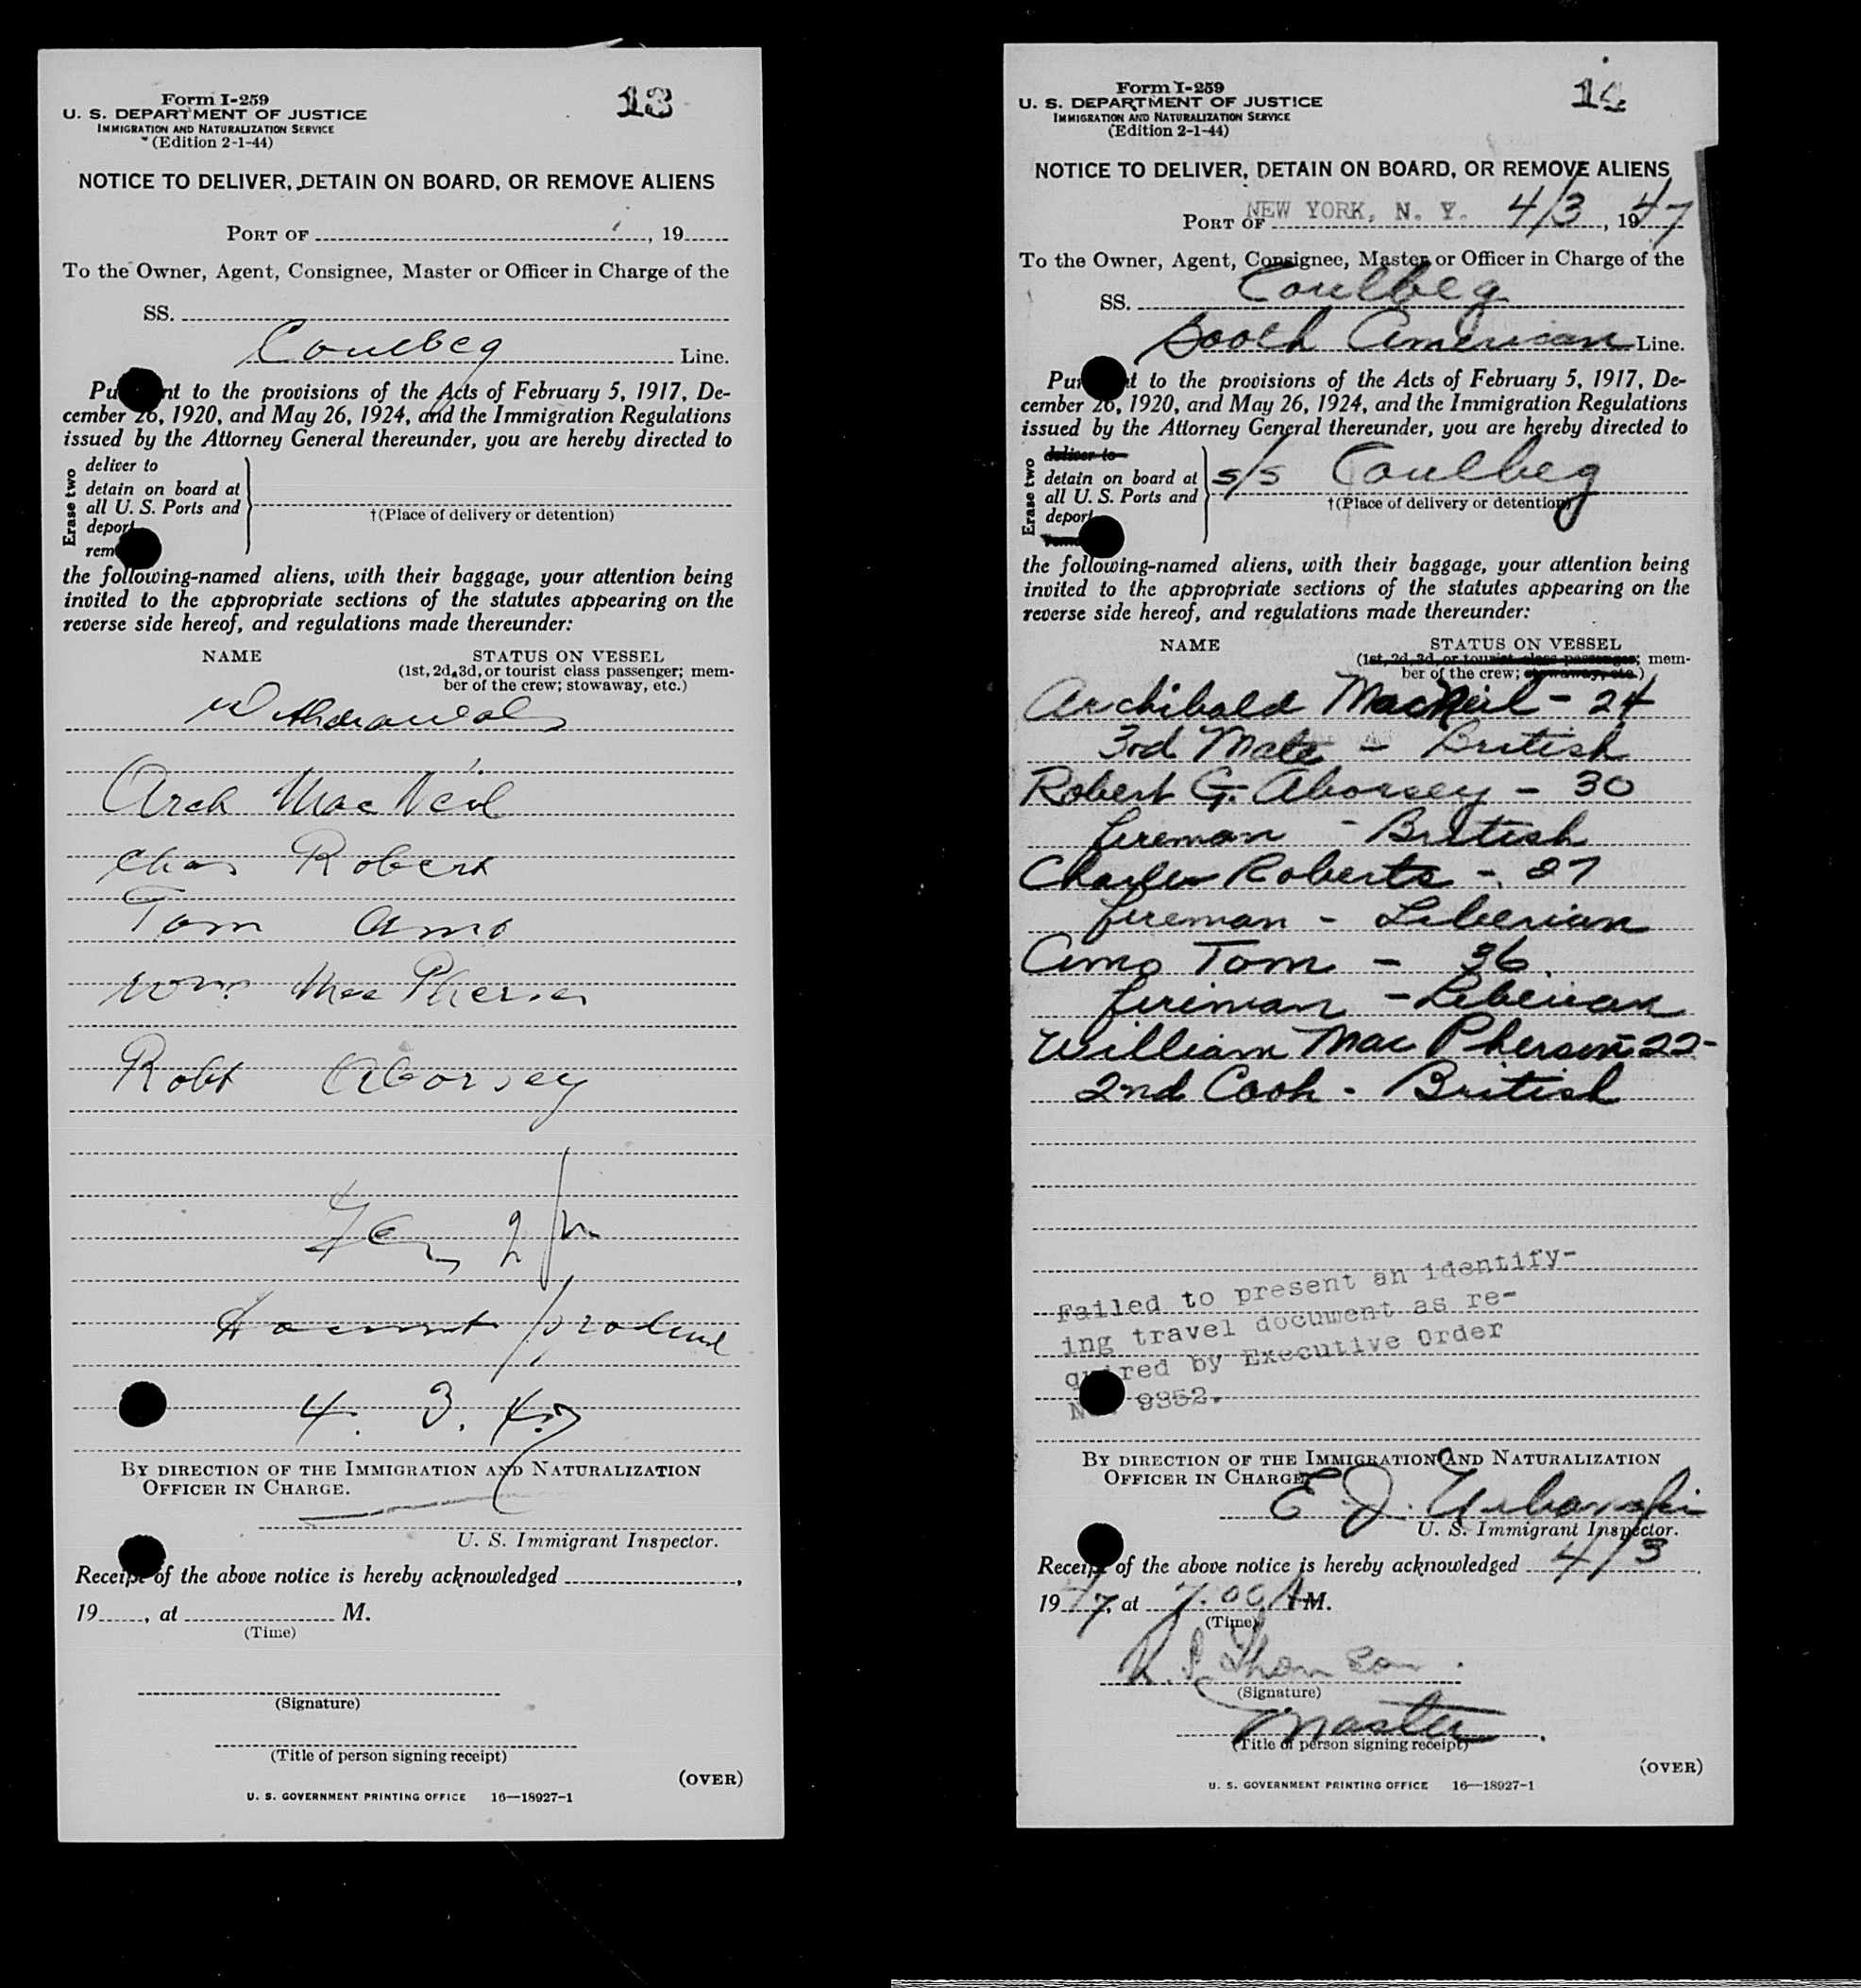 Form I-259
U. S. DEPARTMENT OF JUSTICE
IMMIGRATION AND NATURALIZATION SERVICE
(Edition 2-1-44)
13
NOTICE TO DELIVER, DETAIN ON BOARD, OR REMOVE ALIENS
PORT OF , 19
To the Owner, Agent, Consignee, Master or Officer in Charge of the
SS.
Coulbeg Line.
Pu nt to the provisions of the Acts of February 5, 1917, De-
cember 26, 1920, and May 26, 1924, and the Immigration Regulations
issued by the Attorney General thereunder, you are hereby directed to
Erase two
deliver to
detain on board at
all U. S. Ports and
deport
rem
†(Place of delivery or detention)
the following-named aliens, with their baggage, your attention being
invited to the appropriate sections of the statutes appearing on the
reverse side hereof, and regulations made thereunder:
NAME STATUS ON VESSEL
(1st, 2d, 3d, or tourist class passenger; mem-
ber of the crew; stowaway, etc.)
Withdrawals
Arch MacNeil
Chas Robert
Tom Amo
Wm. MacPherson
Robt Aborsey
4. 3. 47
BY DIRECTION OF THE IMMIGRATION AND NATURALIZATION
OFFICER IN CHARGE.
U. S. Immigrant Inspector.
Receipt of the above notice is hereby acknowledged ,
19 , at M.
(Time)
(Signature)
(Title of person signing receipt)
(OVER)
U. S. GOVERNMENT PRINTING OFFICE 16—18927-1
Form I-259
U. S. DEPARTMENT OF JUSTICE
IMMIGRATION AND NATURALIZATION SERVICE
(Edition 2-1-44)
14
NOTICE TO DELIVER, DETAIN ON BOARD, OR REMOVE ALIENS
PORT OF NEW YORK, N. Y. 4/3, 1947
To the Owner, Agent, Consignee, Master or Officer in Charge of the
SS. Coulbeg
South American Line.
Pur t to the provisions of the Acts of February 5, 1917, De-
cember 26, 1920, and May 26, 1924, and the Immigration Regulations
issued by the Attorney General thereunder, you are hereby directed to
Erase two
deliver to
detain on board at
all U. S. Ports and
deport
s/s Coulbeg
†(Place of delivery or detention)
the following-named aliens, with their baggage, your attention being
invited to the appropriate sections of the statutes appearing on the
reverse side hereof, and regulations made thereunder:
NAME STATUS ON VESSEL
(1st, 2d, 3d, or tourist class passenger; mem-
ber of the crew; stowaway, etc.)
Archibald MacNeil - 24
3rd Mate - British
Robert G. Aborsey - 30
fireman - British
Charles Roberts - 27
fireman - Liberian
Amo Tom - 36
fireman - Liberian
William MacPherson - 22-
2nd Cook - British
Failed to present an identify-
ing travel document as re-
quired by Executive Order
N 9352.
BY DIRECTION OF THE IMMIGRATION AND NATURALIZATION
OFFICER IN CHARGE
E. J. Urbanski
U. S. Immigrant Inspector.
Receipt of the above notice is hereby acknowledged 4/3
1947, at 7.00 A M.
(Time)
Thomson.
(Signature)
Master
(Title of person signing receipt)
(OVER)
U. S. GOVERNMENT PRINTING OFFICE 16—18927-1